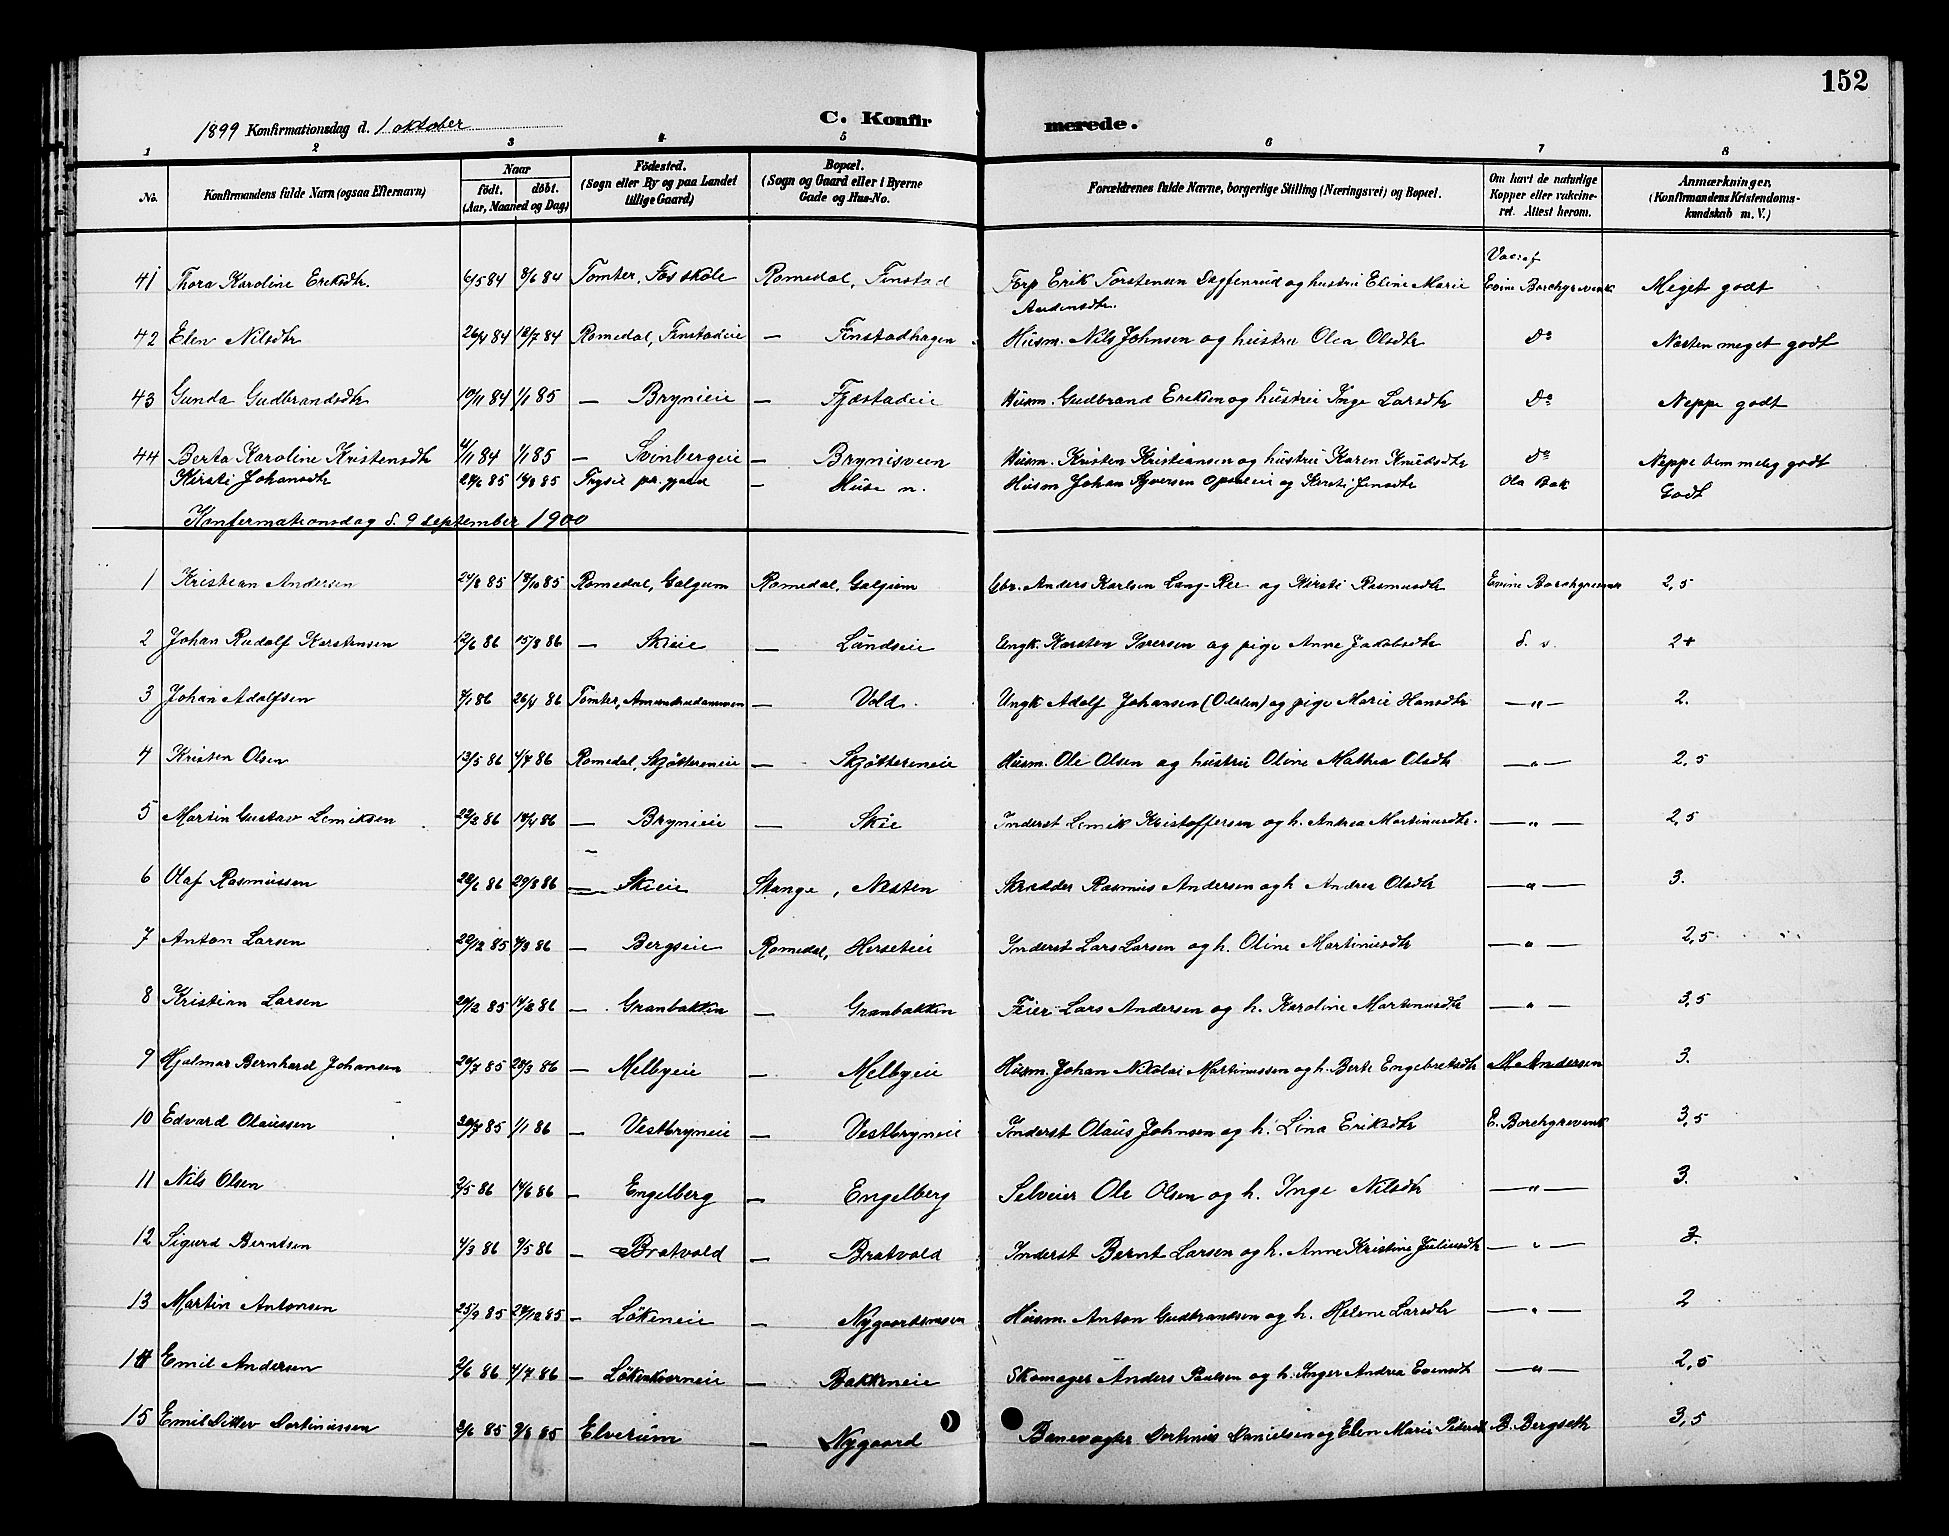 152
1899 Konfirmationsdag d. 1 oktober C. Konfir merede.
1 2 3 4 5 6 7 8
No. Konfirmandens fulde Navn (ogsaa Efternavn) Naar födt. döbt. (Aar, Maaned og Dag) Födested. (Sogn eller By og paa Landet tillige Gaard) Bopæl. (Sogn og Gaard eller i Byerne Gade og Hus-No. Forældrenes fulde Navne, borgerlige Stilling (Næringsvei) og Bopæl. Om havt de naturlige Kopper eller vakcineret. Attest herom. Anmærkninger, (Konfirmandens Kristendomskundskab m. V.)
41 Thora Karoline Eriksdtr. 6/5 84 8/6 84 Tomter, Fosskole Romedal, Finstad Forp Erik Torstensen Dagfinrud og hustru Eline Marie Evine Borchgrevink Meget godt
42 Elen Nilsdtr 26/4 84 Romedal, Finstadeie — Finstadhagen Husm. Nils Johnsen og hustru Olea Olsdtr Do Næsten meget godt
43 Gunda Gudbrandsdtr 10/11 84 1/1 85 — Brynieie — Fjæstadeie Husm. Gudbrand Eriksen og hustru Inge Larsdtr Do Neppe godt
44 Berta Karoline Kristensdtr 4/11 84 1/1 85 — Svinbergeie — Brynisveen Husm. Kristen Kristiansen og hustru Karen Knudsdtr Do
Kirsti Johansdtr Husm Johan Ola Bak Godt
Konfermationsdag d. 9 september 1900
1 Kristian Andersen Romedal, Galgum Romedal, Galgum Anders Karlsen Lang-Ree og Kirsti Rasmusdtr Evine Borchgrevink 2,5
2 Johan Rudolf Karstensen 12/6 86 15/8 86 — Skieie — Lundseie Ungk. Karsten Iversen og pige Anne Jakobsdtr 2+
3 Johan Adolfsen 26/4 86 Tomter, — Vold. Ungk Adolf Johansen (Odalen) og pige Marie Hansdtr —"— 2.
4 Kristen Olsen 13/5 86 4/7 86 Romedal, Skjöttereneie — Skjöttereneie Husm. Ole Olsen og hustru Oline Mathea Olsdtr —"— 2,5
5 Martin Gustav Lemiksen — Brynieie — Skie Inderst Lemik Kristoffersen og h. Andrea Martinusdtr. —"— 2,5
6 Olaf Rasmussen 28/6 86 29/8 86 — Skieie Stange, Nesten Skrædder Rasmus Andersen og h. Andrea Olsdtr —"— 3.
7 Anton Larsen 29/12 85 — Bergseie Romedal, Horseteie Inderst Lars Larsen og h. Oline Martinusdtr —"— 2,5
8 Kristian Larsen 14/2 86 — Granbakken — Granbakken Feier Lars Andersen og h. Karoline Martinusdtr —"— 3,5
9 Hjalmar Bernhard Johansen 28/3 86 — Melbyeie — Melbyeie Husm. Johan Nikolai Martinussen og h. Berte Engebretsdtr M. Andersen 3.
10 Edvard Olaussen 1/1 86 — Vestbryneie — Vestbryneie Inderst Olaus Johnsen og h. Lina Eriksdtr E. Borchgrevink 3,5
11 Nils Olsen 2/5 86 14/6 86 — Engelberg — Engelberg Selveier Ole Olsen og h. Inge Nilsdtr —"— 3.
12 Sigurd Berntsen 4/3 86 9/5 86 — Bratvold — Bratvold Inderst Bernt Larsen og h. Anne Kristine Juliusdtr —"— 3.
13 Martin Antonsen 25/9 85 — Lökeneie — Husm. Anton Gudbrandsen og h. Helene Larsdtr —"— 2
14 Emil Andersen 2/6 86 4/7 86 — — Bakkeneie Skomager Anders Paulsen og h. Inger Andrea Evensdtr —"— 2,5
15 Emil Ditlev Dortinussen Elverum — Nygaard Banevogter Dortinus Danielsen og Elen Marie B. Bergseth 3,5